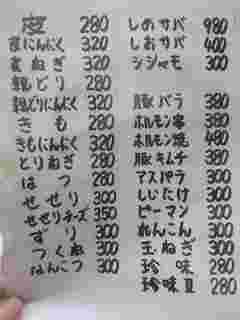 皮 280
皮にんにく 320
皮ねぎ 320
親どり 280
親どりにんにく 320
きも 280
きもにんにく 320
とりねぎ 280
はつ 280
せせり 300
せせりチーズ 350
ずり 300
つくね 300
はんこつ 300
しおサバ 980
しおサバ 400
シシャモ 300
豚バラ 380
ホルモン串 380
ホルモン焼 480
豚キムチ 380
アスパラ 300
しいたけ 300
ピーマン 300
れんこん 300
玉ねぎ 300
珍味 280
珍味Ⅱ 280